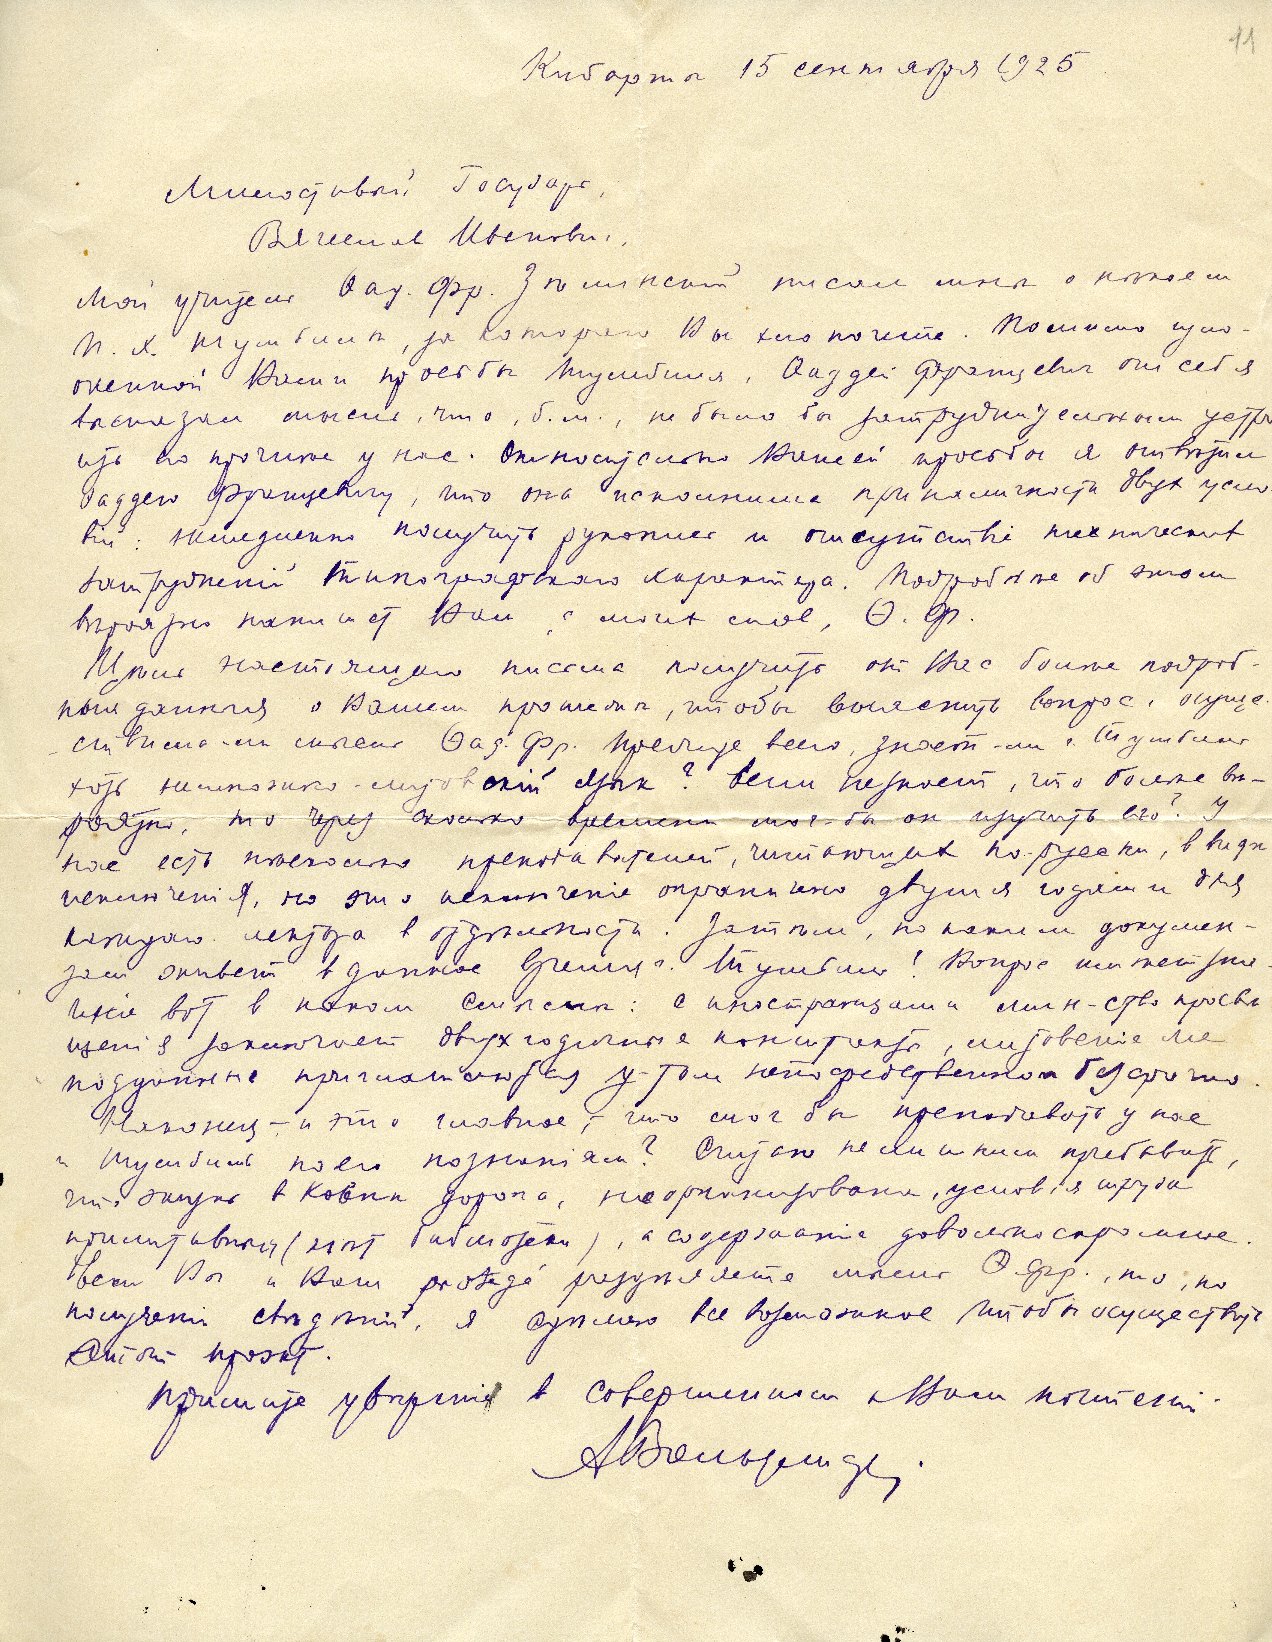 11
Кибарты 15 сентября 1925
Милостивый Государь,
Вячеслав Иванович,
Мой учитель Фад. Фр. Зелинский писал мне о некоем
Н. Х. Тумбиле, за которого Вы хлопочете. Помимо изло-
женной Вами просьбы Тумбиля, Фаддей Францевич от себя
высказал мысль, что, б.м., не было бы затруднительным устро
ить его прочнее у нас. Относительно Вашей просьбы я ответил
Фаддею Францевичу, что она исполнима при наличности двух усло
вий: немедленно получить рукопись и отсутствие технических
затруднений типографского характера. Подробнее об этом
вероятно напишет Вам, с моих слов, Ф. Ф.
Цель настоящего письма получить от Вас более подроб-
ные данныя о Вашем протеже, чтобы выяснить вопрос, осуще-
ствима-ли мысль Фад. Фр. Прежде всего, знает-ли г. Тумбиль
хоть немножко литовский язык? Если не знает, что более ве-
роятно, то через сколько времени мог-бы он изучить его? У
нас есть несколько преподавателей, читающих по-русски, в виде
исключения, но это исключение ограничено двумя годами для
каждого лектора в отдельности. Затем, по каким докумен-
там живет в данное время г. Тумбиль? Вопрос имеет зна-
чение вот в каком смысле: с иностранцами мин-ство просве
щения заключает двухгодичные контракты, литовские же
подданные приглашаются у-том непосредственно бессрочно.
Наконец - и это главное, - что мог бы преподавать у нас
г. Тумбиль по его познаниям? Считаю не лишним прибавить,
что жизнь в Ковне дорога, неорганизована, условия труда
примитивны (нет библиотеки), а содержание довольно скромное.
Если Вы и Ваш protegé разделяете мысль Ф. Фр., то, по
получении сведений, я сделаю все возможное чтобы осуществить
этот проэкт.
Примите уверение в совершенном к Вам почтении.
А Вольдемар.